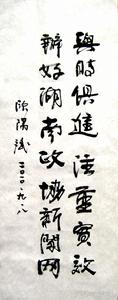 與時俱進注重實效
辦好湖南政協新聞网
歐陽斌
二〇一〇.九.八